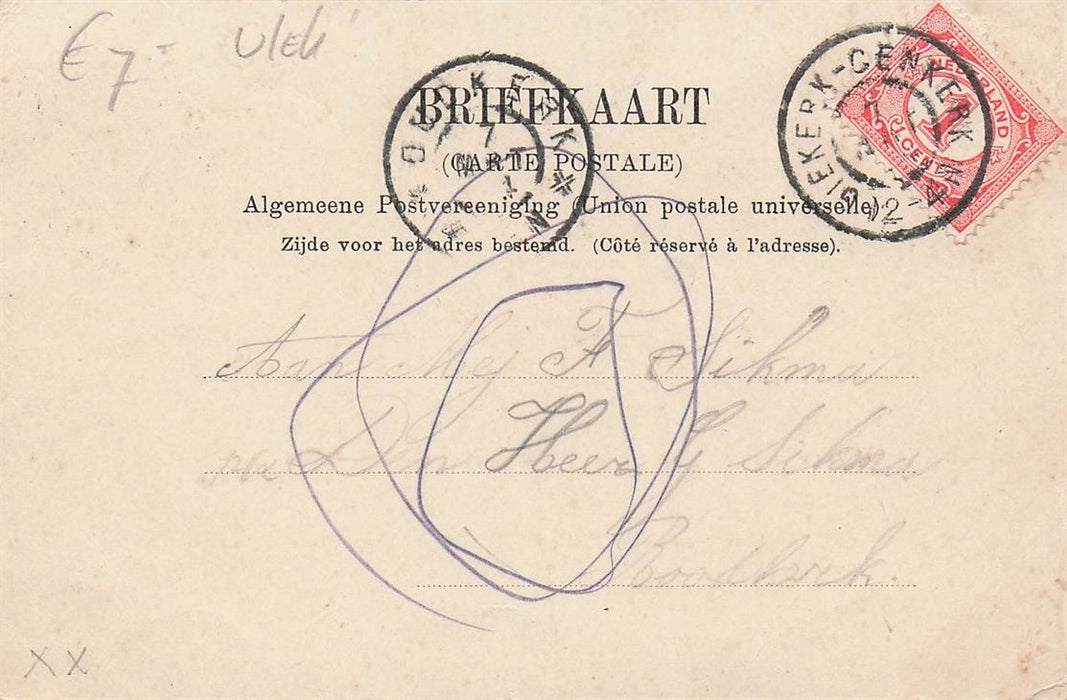 € 7 -
BRIEFKAART
(CARTE POSTALE)
Algemeene Postvereeniging (Union postale universelle)
Zijde voor het adres bestemd. (Côté réservé à l'adresse).
OUDKERK
GIEKERK-OENKERK
NEDERLAND
1
CENT
Aan Mej F Sikma
Den Heer Sikma
XX